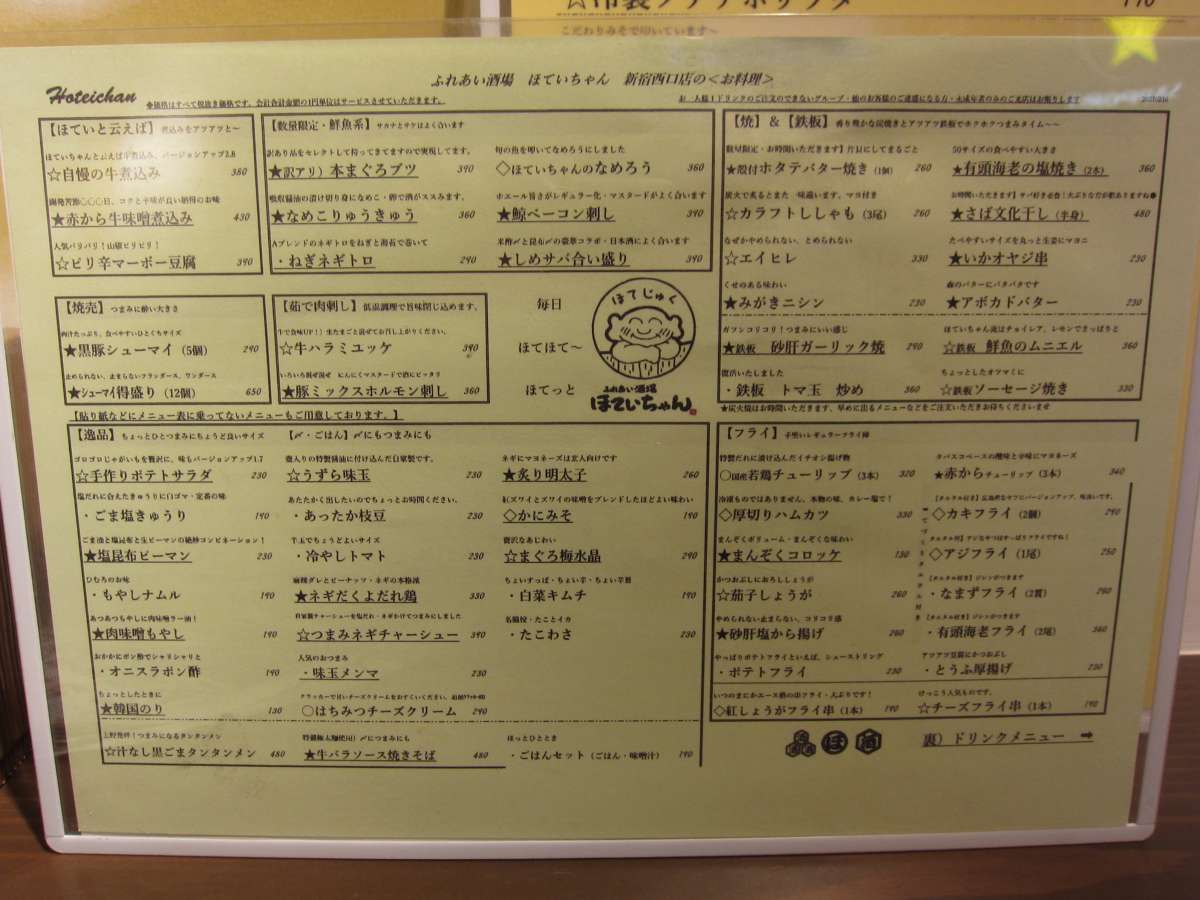 ふれあい酒場 ほていちゃん 新宿西口店の<お料理>
Hoteichan
◆価格はすべて税抜き価格です。会計合計金額の1円単位はサービスさせていただきます。
【ほていと云えば】煮込みをアツアツと~
ほていちゃんと云えば牛煮込み、バージョンアップ2.8
☆自慢の牛煮込み 380
★赤から牛味噌煮込み 430
人気バリバリ!山椒ビリビリ!
☆ピリ辛マーボー豆腐 390
【数量限定・鮮魚系】サカナとサケはよく合います
訳あり品をセレクトして持ってきてますので実現してます。
★訳アリ)本まぐろブツ 390
旬の魚を叩いてなめろうにしました
◇ほていちゃんのなめろう 360
★なめこりゅうきゅう 360
ホエール旨さがレギュラー化・マスタードがよく合います
★鯨ベーコン刺し 390
Aブレンドのネギトロをねぎと海苔で巻いて
・ねぎネギトロ 190
米酢〆と昆布〆の豪華コラボ・日本酒によく合います
★しめサバ合い盛り 390
【焼】&【鉄板】香り豊かな炭焼きとアツアツ鉄板でホクホクつまみタイム~~
数量限定・お時間いただきます】片貝にしてまるごと
★殻付ホタテバター焼き(1個) 260
50サイズの食べやすい大きさ
★有頭海老の塩焼き(2本) 360
炭火で炙るとまた一味違います、マヨ付き
☆カラフトししゃも(3尾) 260
★さば文化干し(半身) 480
なぜかやめられない、とめられない
☆エイヒレ 330
たべやすいサイズを丸っと生姜にマヨニ
★いかオヤジ串 230
くせのある味わい
★みがきニシン 230
森のバターにバタバタです
★アボカドバター 230
ガツンコリコリ!つまみにいい感じ
★鉄板 砂肝ガーリック焼 290
ほていちゃん流はチョイレア、レモンでさっぱりと
☆鉄板 鮮魚のムニエル 360
復活いたしました
・鉄板 トマ玉 炒め 360
ちょっとしたオツマミに
☆鉄板ソーセージ焼き 330
★炭火焼はお時間いただきます、早めに出るメニューなどをご注文いただきお待ちくださいませ
【焼売】つまみに酔い大きさ
肉汁たっぷり、食べやすいひとくちサイズ
★黒豚シューマイ(5個) 290
止められない、止まらないフランダース、ワンダース
★シューマイ得盛り(12個) 650
【茹で肉刺し】低温調理で旨味閉じ込めます。
牛で旨味UP!)生たまごと混ぜてお召し上がりください。
☆牛ハラミユッケ 390
いろいろ混ぜ混ぜ にんにくマスタードで酒にピッタリ
★豚ミックスホルモン刺し 360
毎日
ほてほて~
ほてっと
ほてじゅく
ふれあい酒場
ほていちゃん
【貼り紙などにメニュー表に乗ってないメニューもご用意しております。】
【逸品】ちょっとひとつまみにちょうど良いサイズ
【〆・ごはん】〆にもつまみにも
ゴロゴロじゃがいもを贅沢に、味もバージョンアップ1.7
☆手作りポテトサラダ 230
壺入りの特製醤油に付け込んだ自家製です。
☆うずら味玉 230
ネギにマヨネーズは玄人向けです
★炙り明太子 260
塩だれに合えたきゅうりに白ゴマ・定番の味
・ごま塩きゅうり 190
あたたかく出したいのでちょっとお時間ください。
・あったか枝豆 230
紅ズワイとズワイの味噌をブレンドしたほどよい味わい
◇かにみそ 190
ごま油と塩昆布と生ピーマンの絶妙コンビネーション!
★塩昆布ピーマン 230
半玉でちょうどよいサイズ
・冷やしトマト 230
贅沢なあじわい
☆まぐろ梅水晶 290
ひむろのお味
・もやしナムル 190
麻辣ダレとピーナッツ・ネギの本格派
★ネギだくよだれ鶏 330
ちょいすっぱ・ちょい辛・ちょい辛麹
・白菜キムチ 190
あつあつもやしに肉味噌ラー油!
★肉味噌もやし 190
自家製チャーシューを塩だれ・ネギかけてつまみにしました
☆つまみネギチャーシュー 390
名脇役・たことイカ
・たこわさ 230
おかかにポン酢でシャリシャリと
・オニスラポン酢 190
人気のおつまみ
・味玉メンマ 230
ちょっとしたときに
★韓国のり 130
○はちみつチーズクリーム 290
上野発祥!つまみになるタンタンメン
☆汁なし黒ごまタンタンメン 480
特製極太麺使用)〆につまみにも
★牛バラソース焼きそば 480
ほっとひととき
・ごはんセット(ごはん・味噌汁) 190
【フライ】手塗いレギュラーフライ陣
特製だれに漬け込んだイチオシ揚げ物
○国産若鶏チューリップ(3本) 320
タバスコベースの酸味と辛味にマヨネーズ
★赤からチューリップ(3本) 340
冷凍ものではありません、本物の味、カレー塩で!
◇厚切りハムカツ 330
◇カキフライ(2個) 290
まんぞくボリューム・まんぞくな味わい
★まんぞくコロッケ 130
◇アジフライ(1尾) 250
かつおぶしにおろししょうが
☆茄子しょうが 260
【タルタル付き】ジンがつきます
・なまずフライ(2貫) 290
やめられない止まらない、コリコリ感
★砂肝塩から揚げ 260
【タルタル付き】ジンがつきます
・有頭海老フライ(2尾) 360
やっぱりポテトフライといえば、シューストリング
・ポテトフライ 230
アツアツ豆腐にかつおぶし
・とうふ厚揚げ 230
いつのまにかエース格の串フライ・大ぶりです!
◇紅しょうがフライ串(1本) 190
けっこう人気ものです。
☆チーズフライ串(1本) 190
ほ 酒
裏)ドリンクメニュー ➡